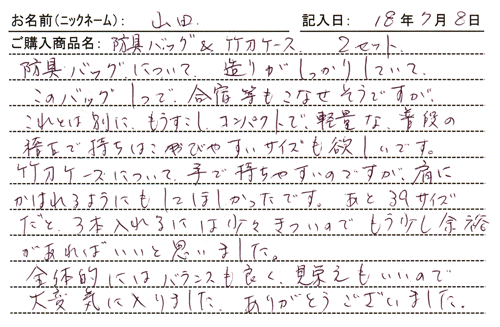 お名前(ニックネーム): 山田 記入日: 18年7月8日
ご購入商品名: 防具バッグ & 竹刀ケース 2セット
防具バッグについて、造りがしっかりしていて、
このバッグ1つで、合宿等もこなせそうですが、
これとは別に、もうすこしコンパクトで、軽量な、普段の
稽古で持ちはこびやすいサイズも欲しいです。
竹刀ケースについて、手で持ちやすいのですが、肩に
かけれるようにもしてほしかったです。あと39サイズ
だと、3本入れるには少々きついので もう少し余裕
があればいいと思いました。
全体的にはバランスも良く、見栄えもいいので
大変気に入りました。ありがとうございました。